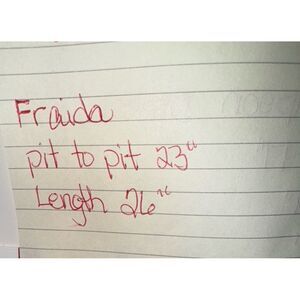 Fraida
pit to pit 23"
Length 26"